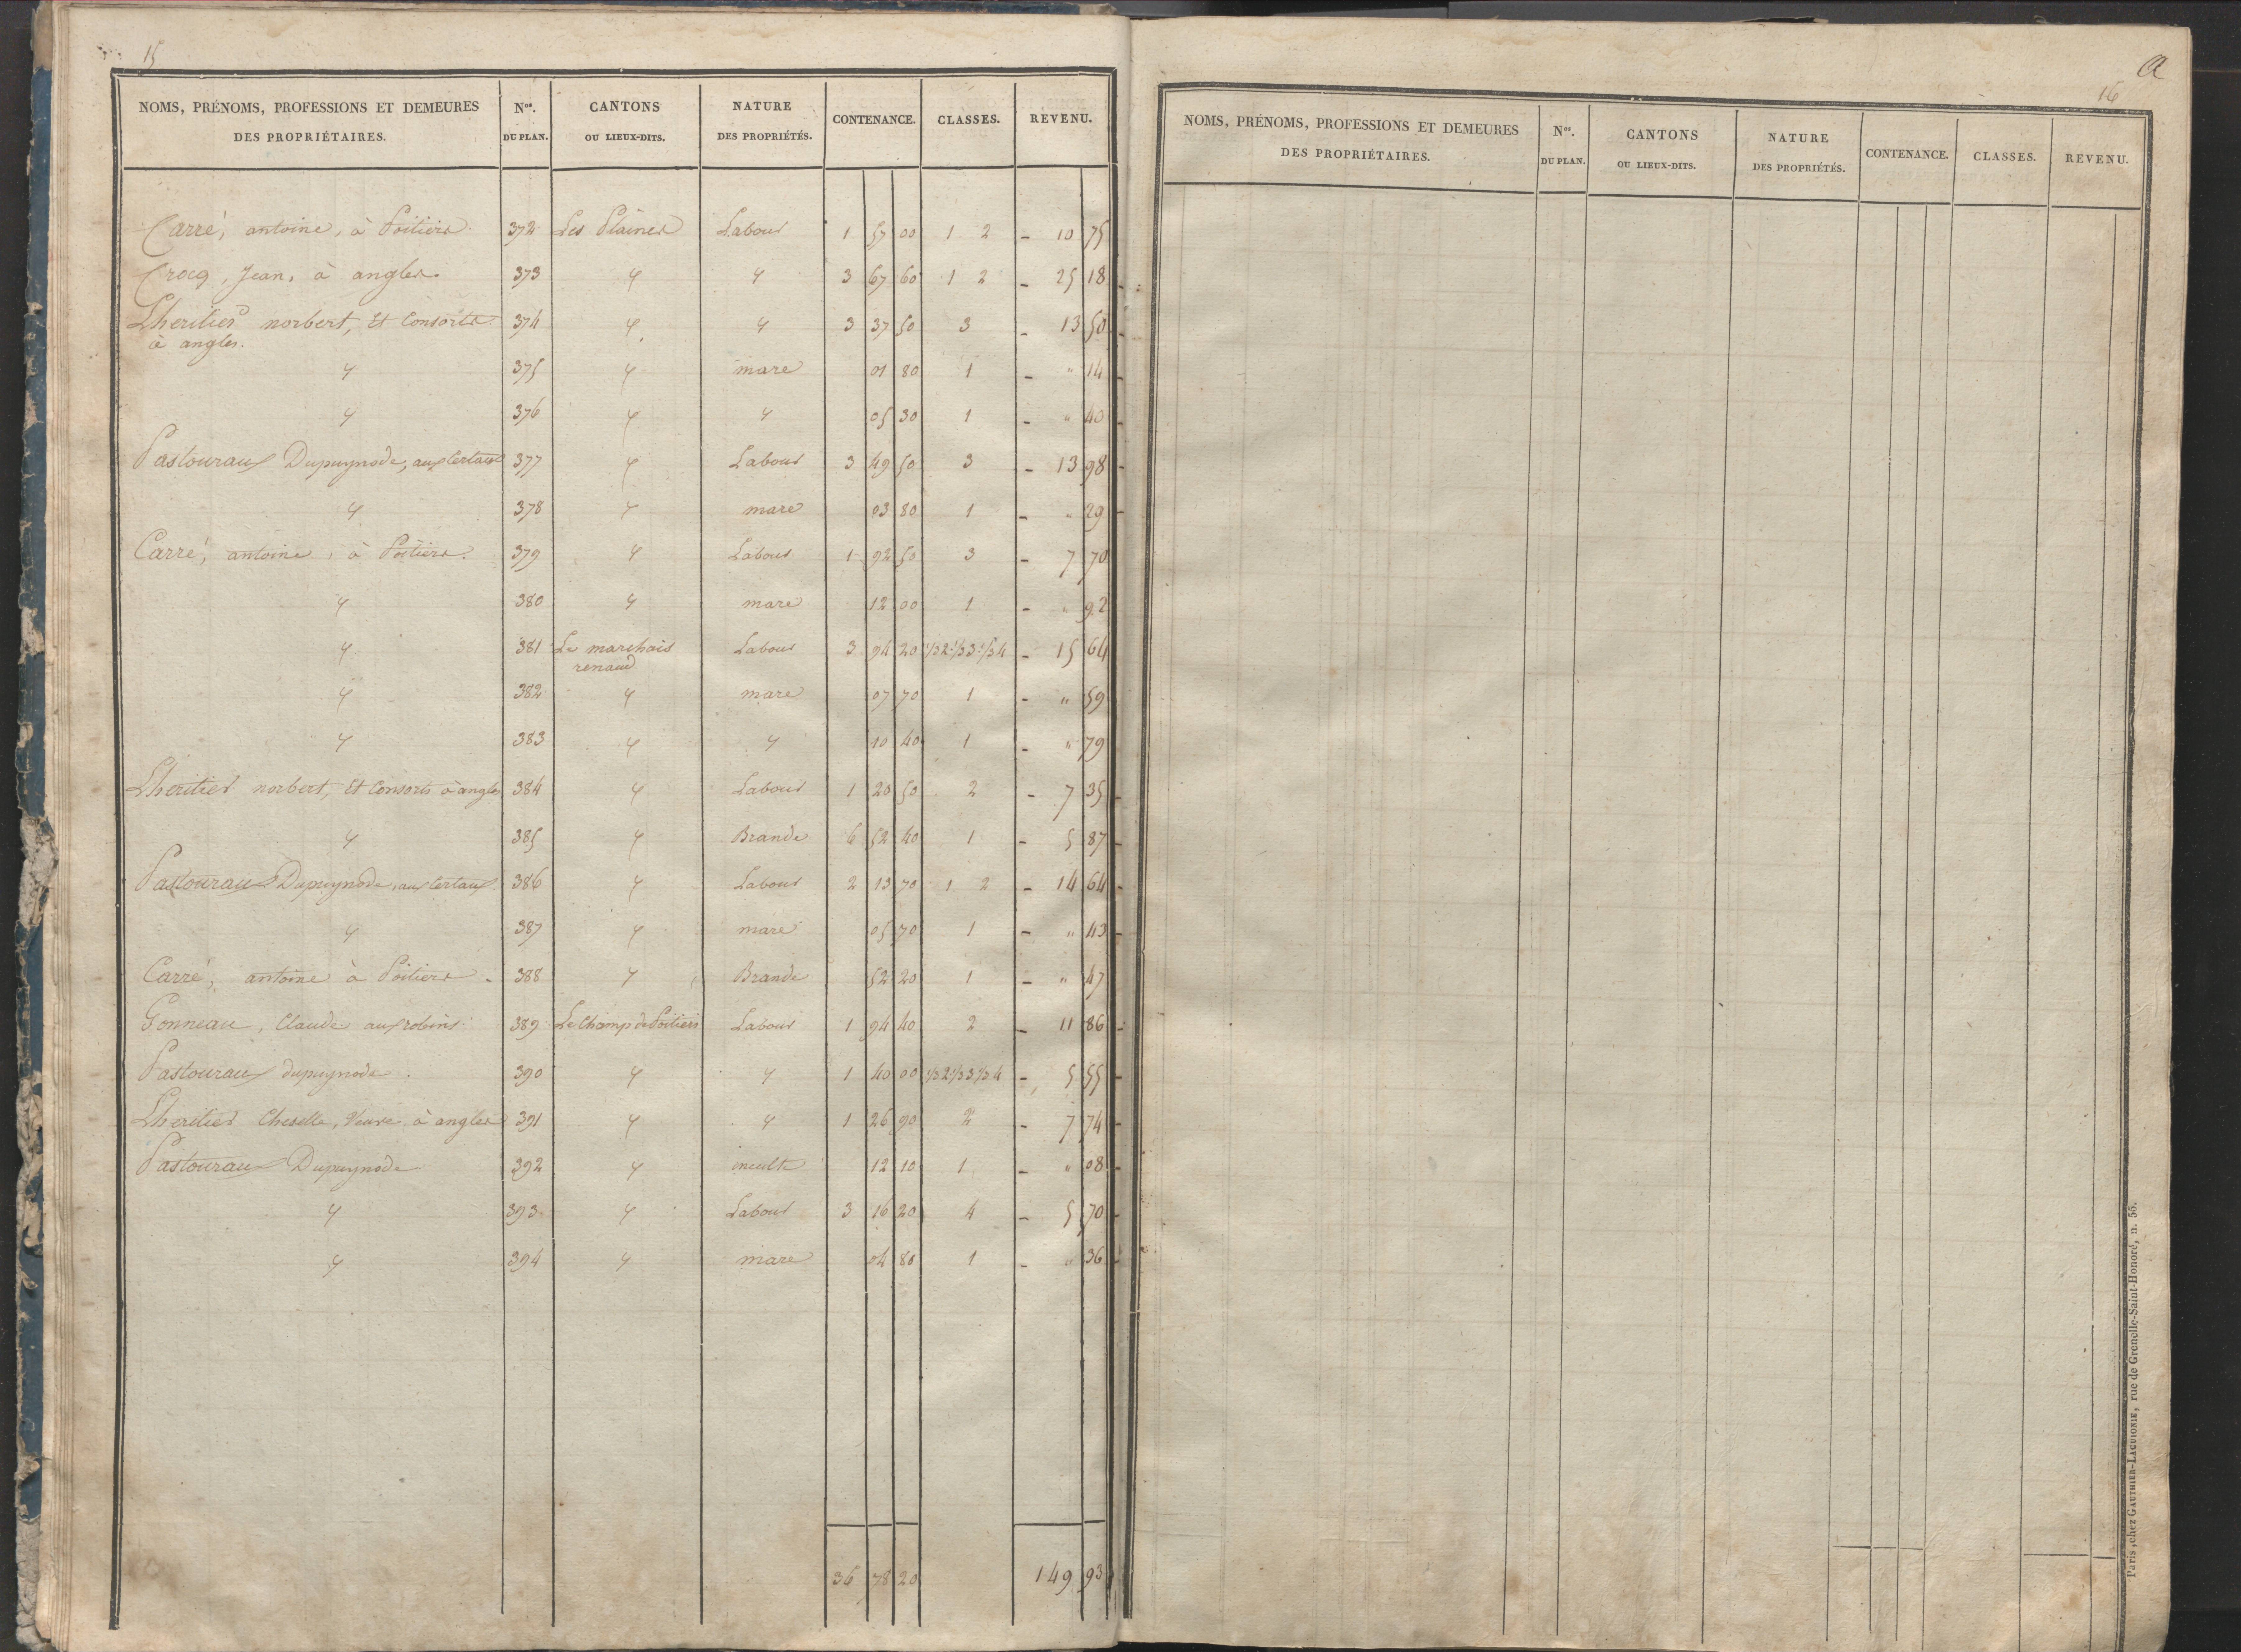 15
NOMS, PRÉNOMS, PROFESSIONS ET DEMEURES DES PROPRIÉTAIRES. Nos. DU PLAN. CANTONS OU LIEUX-DITS. NATURE DES PROPRIÉTÉS. CONTENANCE. CLASSES. REVENU.
Carré, antoine, à Poitiers. 372 Les Plaines Labour 1 57 00 1 2 - 10 75
Crocq, Jean, à angles 373 " " 3 67 60 1 2 - 25 18
Lheritier norbert, et Consorts 374 " " 3 37 50 3 - 13 50
à angles.
" 375 " mare 01 80 1 - " 14
" 376 " " 05 30 1 - " 40
Pastouraux Dupuynode, aux Certaux 377 " Labour 3 49 50 3 - 13 98
" 378 " mare 03 80 1 - " 29
Carré, antoine, à Poitiers. 379 " Labour 1 92 50 3 - 7 70
" 380 " mare 12 00 1 - " 92
" 381 Le marchais Labour 3 94 20 1/3 2 1/3 3 1/3 4 - 15 64
renaud
" 382 " mare 07 70 1 - " 59
" 383 " " 10 40 1 - " 79
Lheritier norbert, et Consorts à angles 384 " Labour 1 20 50 2 - 7 35
" 385 " Brande 6 52 40 1 - 5 87
Pastouraux Dupuynode, aux Certaux 386 " Labour 2 13 70 1 2 - 14 64
" 387 " mare 05 70 1 - " 43
Carré, antoine à Poitiers - 388 " Brande 52 20 1 - " 47
Gonneau, Claude aux robins 389 Le Champ de Poitiers Labour 1 94 40 2 - 11 86
Pastouraux dupuynode. 390 " " 1 40 00 1/3 2 1/3 3 1/3 4 - 5 55
Lheritier Cheselle, Veuve à angles 391 " " 1 26 90 2 - 7 74
Pastouraux Dupuynode 392 " inculte 12 10 1 - " 08
" 393 " Labour 3 16 20 4 - 5 70
" 394 " mare 04 80 1 - " 36
36 78 20 149 93
a
16
NOMS, PRÉNOMS, PROFESSIONS ET DEMEURES DES PROPRIÉTAIRES. Nos. DU PLAN. CANTONS OU LIEUX-DITS. NATURE DES PROPRIÉTÉS. CONTENANCE. CLASSES. REVENU.
Paris, chez GAUTHIER-LAGUIONIE, rue de Grenelle-Saint-Honoré, n. 55.